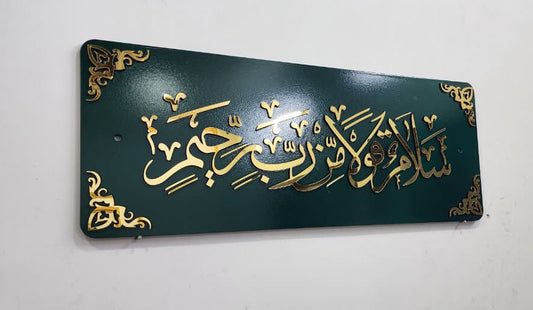 سَلَامٌ قَوْلًا مِّن رَّبٍّ رَّحِيمٍ